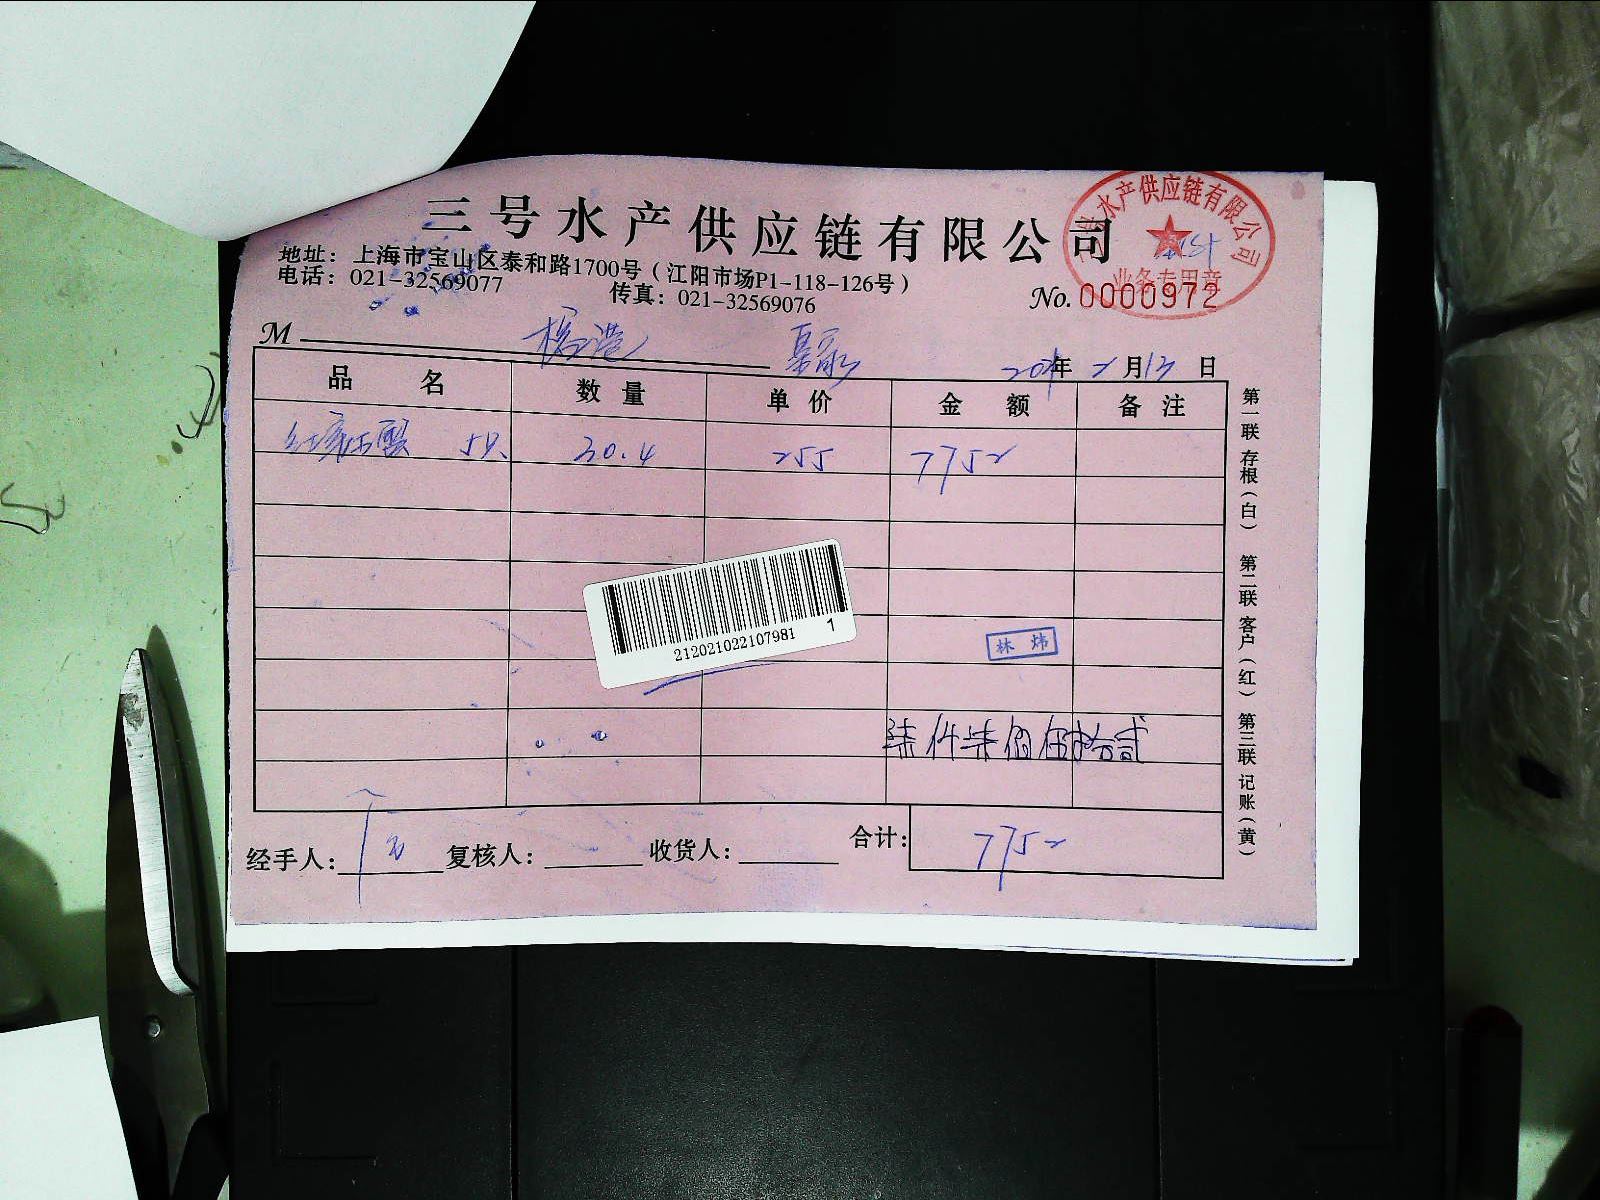 三号水产供应链有限公司
地址：上海市宝山区泰和路1700号（江阳市场P1-118-126号）
电话：021-32569077
传真：021-32569076
水产供应链有限公司
业务专用章
No. 0000972
M
年 2 月 13 日
品 名 数 量 单 价 金 额 备 注
5只 30.4 255 7752
212021022107981 1
林 炜
柒仟柒佰伍拾贰
经手人： 复核人： 收货人： 合计： 7752
第一联 存根（白） 第二联 客户（红） 第三联 记账（黄）